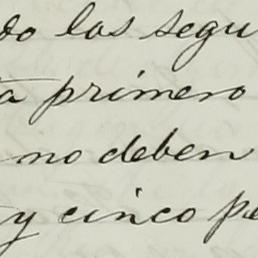 do los segu
a primero
no deben
y cinco pe